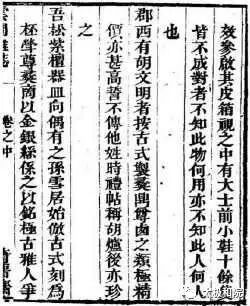 效參啟其皮箱視之中有大士前小鞋十餘
皆不成對者不知此物何用亦不知此人何人
也
郡西有胡文明者按古式製彝鼎尊卣之類極精
價亦甚高誓不傳他姓時禮帖稱胡爐後亦珍
之
吾松紫檀器皿向偶有之孫雪居始倣古式刻為
杯斝尊彝商以金銀絲係之以銘極古雅人爭
卷之中